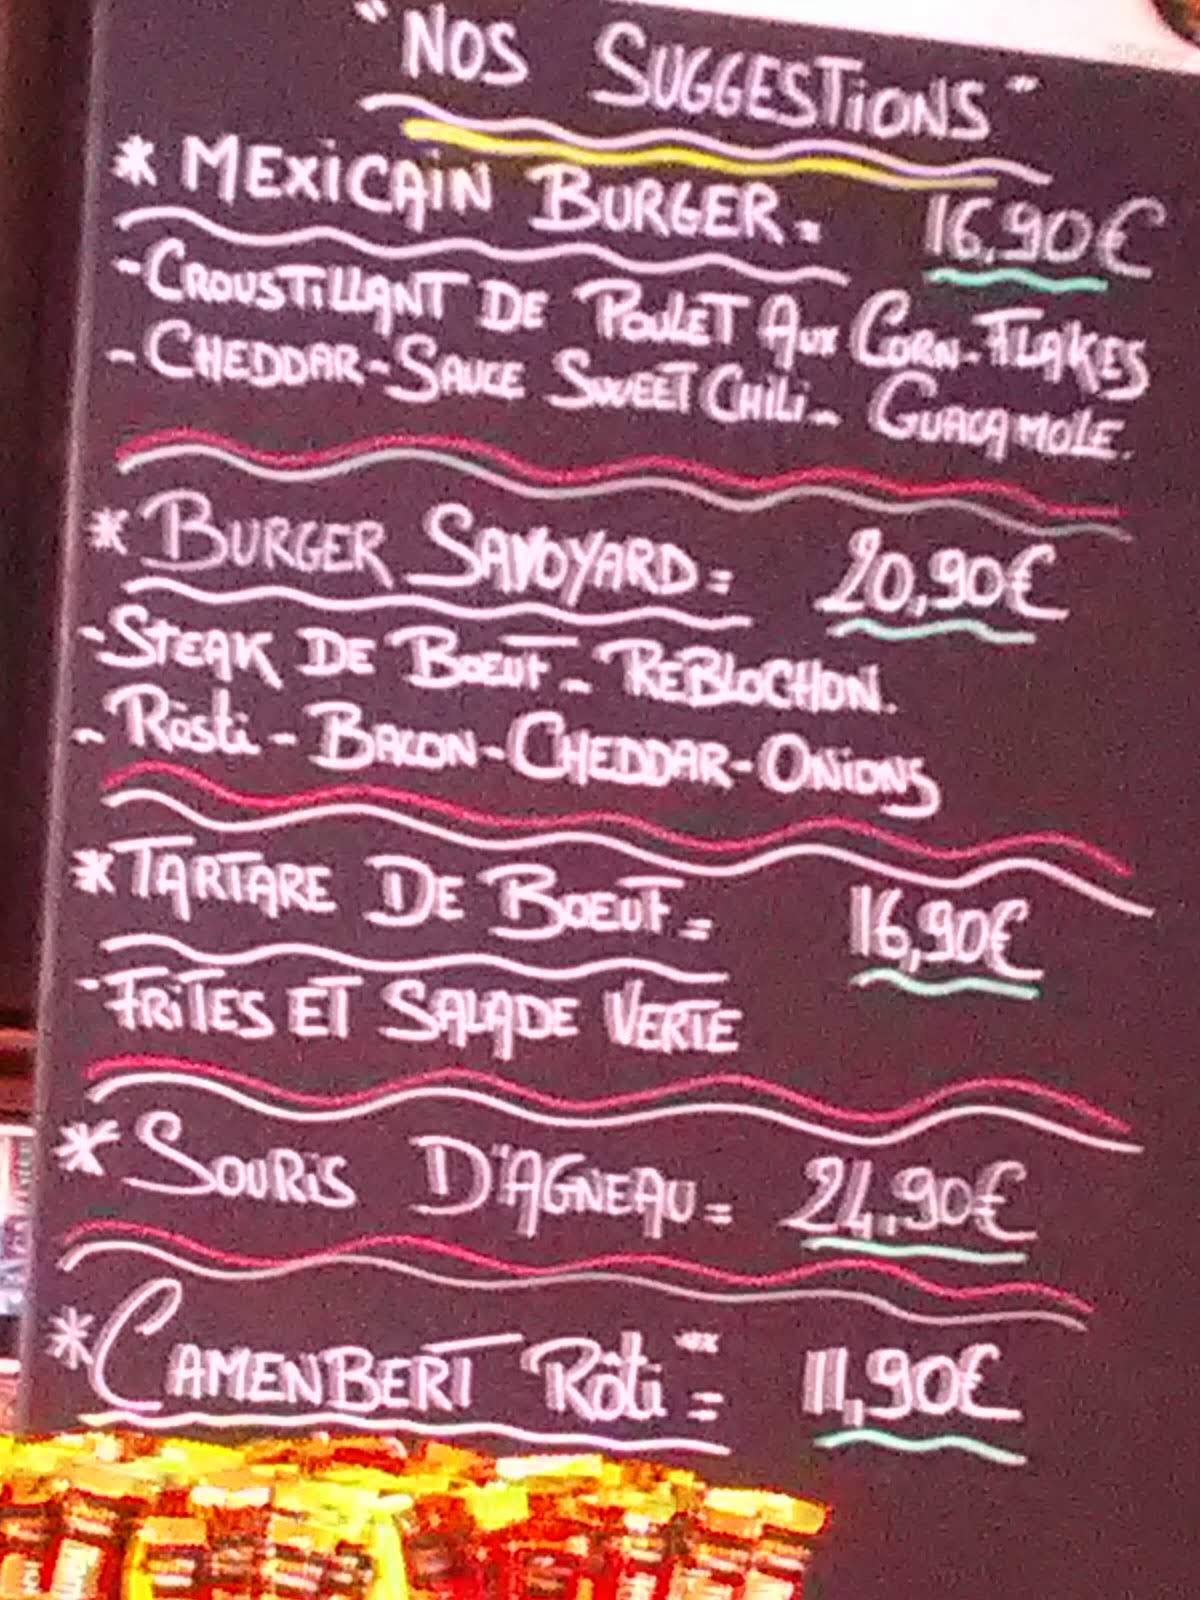 "NOS SUGGESTIONS"
* MEXICAIN BURGER = 16,90€
- CROUSTILLANT DE POULET AUX CORN-FLAKES
- CHEDDAR - SAUCE SWEET CHILI - GUACAMOLE.
* BURGER SAVOYARD = 20,90€
- STEAK DE BOEUF - REBLOCHON.
- Rösti - BACON - CHEDDAR - ONIONS
* TARTARE DE BOEUF = 16,90€
- FRITES ET SALADE VERTE
* SOURIS D'AGNEAU = 24,90€
* CAMENBERT Rôti = 11,90€